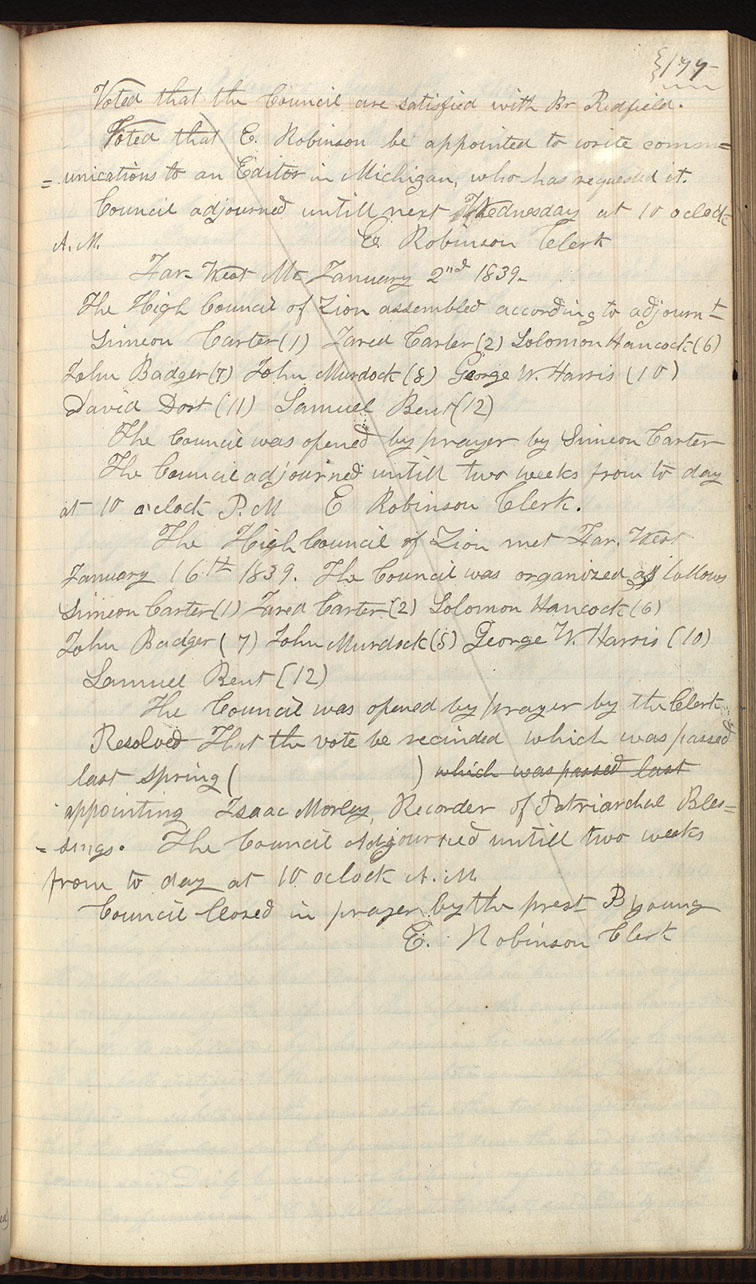 177
Voted that the Council are satisfied with Br Redfield.
Voted that E. Robinson be appointed to write comm=
=unications to an Editor in Michigan, who has requested it.
Council adjourned untill next Wednesday at 10 oclock
A.M. E. Robinson Clerk
Far-West Mo January 2nd 1839-
The High Council of Zion assembled according to adjournt
Simeon Carter (1) Jared Carter (2) Solomon Hancock (6)
John Badger (7) John Murdock (8) George W. Harris (10)
David Dort (11) Samuel Bent (12)
The Council was opened by prayer by Simeon Carter
The Council adjourned untill two weeks from to day
at 10 oclock P.M E Robinson Clerk.
The High Council of Zion met Far. West
January 16th 1839. The Council was organized as follows
Simeon Carter (1) Jared Carter (2) Solomon Hancock (6)
John Badger (7) John Murdock (8) George W. Harris (10)
Samuel Bent (12)
The Council was opened by prayer by the Clerk
Resolved That the vote be recinded which was passed
last spring ( ) which was passed last
appointing Isaac Morley, Recorder of Patriarchal Bles=
=sings. The Council Adjourned untill two weeks
from to day at 10 oclock A.M.
Council Closed in prayer by the prest B young
E. Robinson Clerk